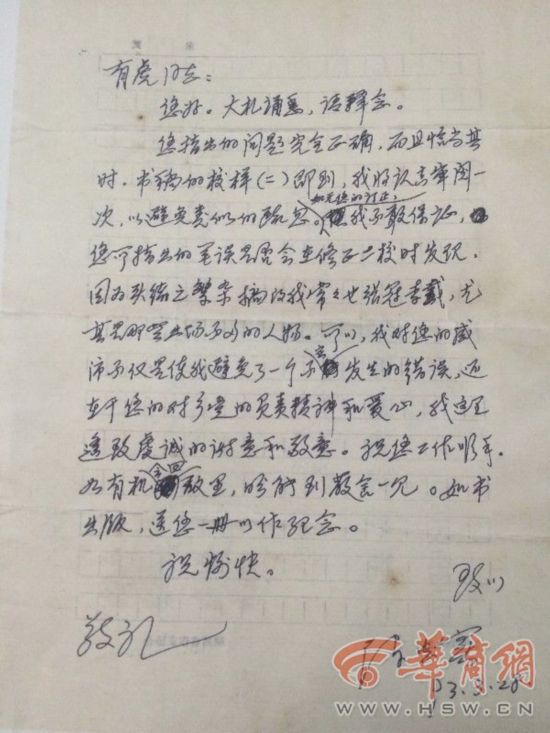 有虎同志：
您好。大札诵悉，语释念。
您指出的问题完全正确，而且恰当其
时。书稿的校样(二)即到，我将认真审阅一
次，以避免类似的疏忽。
如无您的订正，
但我不敢保证，
您所指出的笔误是否会在修正二校时发现。
因为头绪之繁杂搞得我常常也张冠李戴，尤
其是那些出场不多的人物。所以，我对您的感
谢不仅是使我避免了一个不应发生的错误，还
在于您的对乡党的负责精神和爱心，我这里
遥致虔诚的谢意和敬意。祝您工作顺手。
如有机会回故里，盼能到舍一见。如书
出版，送您一册以作纪念。
祝愉快。
致以
敬礼
陈忠实
93.3.28
华商网
WWW.HSW.CN